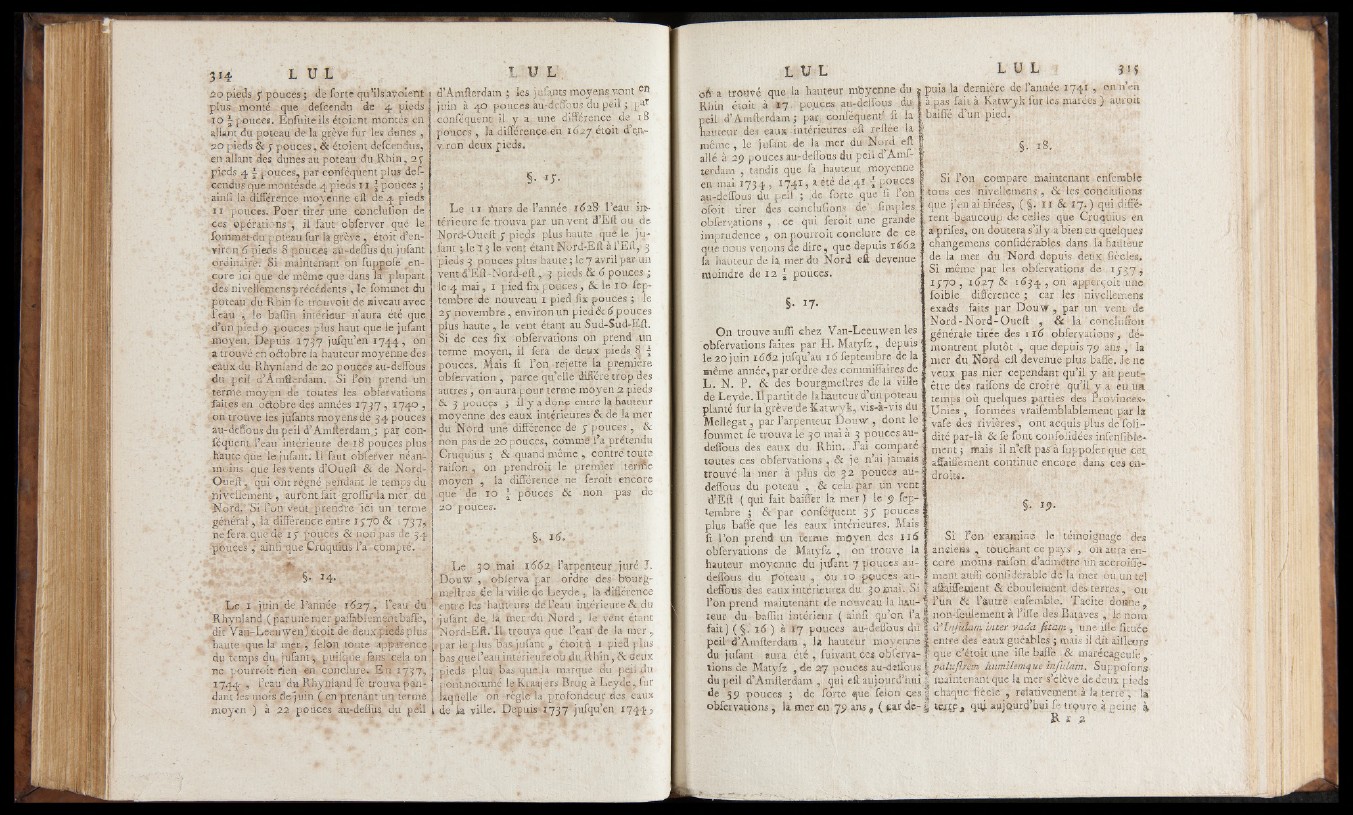 314 L U L
20 pieds 5 pouces ; de ſorte qu'ils avoient
plus monté que deſcendu de 4 pieds
10 ½ pouces. Enſuite ils étoient montés en
allant du poteau de la grève ſur les dunes ,
20 pieds & 5 pouces, & étoient deſcendus,
en allant des dunes au poteau du Rhin, 25
pieds 4 ½ pouces, par conſéquent plus deſ-
cendus que montés de 4 pieds 11 ½ pouces ;
ainſi la différence moyenne eſt de 4 pieds
11 pouces. Pour tirer une concluſion de
ces opérations , il faut obſerver que le
ſommet du poteau ſur la grève , étoit d'en-
viron 6 pieds 8 pouces au-deſſus du juſant
ordinaire. Si maintenant on ſuppoſe en-
core ici que de même que dans la plupart
des nivellemens précédents , le ſommet du
poteau du Rhin ſe trouvoit de niveau avec
l'eau , le baſſin intérieur n'aura été que
d'un pied 9 pouces plus haut que le juſant
moyen. Depuis 1737 juſqu'en 1744, on
a trouvé en octobre la hauteur moyenne des
eaux du Rhynland de 20 pouces au-deſſous
du peil d'Amſterdam. Si l'on prend un
terme moyen de toutes les obſervations
faites en octobre des années 1737, 1740,
on trouve les juſants moyens de 34 pouces
au-deſſous du peil d'Amſterdam ; par con-
ſéquent l'eau intérieure de 18 pouces plus
haute que le juſant. Il faut obſerver néan-
moins que les vents d'Oueſt & de Nord-
Oueſt, qui ont régné pendant le temps du
nivellement, auront fait groſſir la mer du
Nord. Si l'on veut prendre ici un terme
général, la différence entre 1570 & 1737,
ne ſera que de 15 pouces & non pas de 34
pouces , ainſi que Cruquius l'a compté.
§. 14.
Le 1 juin de l'année 1627, l'eau du
Rhynland (par une mer paſſablement baſſe,
dit Van-Leeuwen) étoit de deux pieds plus
haute que la mer , ſelon toute apparence
du temps du juſant, puiſque ſans cela on
ne pourroit rien en conclure. En 1737,
1744 , l'eau du Rhynland ſe trouva pen-
dant les mois de juin (en prenant un terme
moyen ) à 22 pouces au-deſſus du peil
L U L
d'Amſterdam ; les juſants moyens vont en
juin à 40 pouces au-deſſous du peil ; par
conſéquent il y a une différence de 18
pouces , la différence en 1627 étoit d'en-
viron deux pieds.
§. 15.
Le 11 mars de l'année 1628 l'eau in-
térieure ſe trouva par un vent d'Eſt ou de
Nord-Oueſt 5 pieds plus haute que le ju-
ſant ; le 13 le vent étant Nord-Eſt à l'Eſt, 3
pieds 3 pouces plus haute ; le 7 avril par un
vent d'Eſt-Nord-eſt , 3 pieds & 6 pouces ;
le 4 mai, 1 pied ſix pouces , & le 10 ſep-
tembre de nouveau 1 pied ſix pouces ; le
25 novembre , environ un pied & 6 pouces
plus haute , le vent étant au Sud-Sud-Eſt.
Si de ces ſix obſervations on prend un
terme moyen, il ſera de deux pieds 8 ½
pouces. Mais ſi l'on rejette la première
obſervation , parce qu'elle diffère trop des
autres , on aura pour terme moyen 2 pieds
& 3 pouces ; il y a donc entre la hauteur
moyenne des eaux intérieures & de la mer
du Nord une différence de 5 pouces , &
non pas de 20 pouces, comme l'a prétendu
Cruquius ; & quand même , contre toute
raiſon , on prendroit le premier terme
moyen , la différence ne feroit encore
que de 10 ½ pouces & non pas de
20 pouces.
§. 16.
Le 30 mai 1662 l'arpenteur juré J.
Douw , obſerva par ordre des bourg-
meſtres de la ville de Leyde, la différence
entre les hauteurs de l'eau intérieure & du
juſant de la mer du Nord , le vent étant
Nord-Eſt. Il trouva que l'eau de la mer ,
par le plus bas juſant , étoit à 1 pied plus
bas que l'eau intérieure ou du Rhin, & deux
pieds plus bas que la marque du peil du
pont nommé le Kraaijers Brug à Leyde, ſur
laquelle on règle la profondeur des eaux
de la ville. Depuis 1737 juſqu'en 1744,
L U L
on a trouvé que la hauteur moyenne du
Rhin étoit à 17 pouces au-deſſous du
peil d'Amſterdam ; par conſéquent ſi la
hauteur des eaux intérieures eſt reſtée la
même , le juſant de la mer du Nord eſt
allé à 29 pouces au-deſſous du peil d'Amſ-
terdam , tandis que ſa hauteur moyenne
en mai 1734, 1741, a été de 41 ½ pouces
au-deſſous du peil ; de ſorte que ſi l'on
oſoit tirer des concluſions de ſimples
obſervations , ce qui ſeroit une grande
imprudence , on pourroit conclure de ce
que nous venons de dire, que depuis 1662
la hauteur de la mer du Nord eſt devenue
moindre de 12 ½ pouces.
§. 17.
On trouve auſſi chez Van-Leeuwen les
obſervations faites par H. Matyſz , depuis
le 20 juin 1662 juſqu'au 16 ſeptembre de la
même année, par ordre des commiſſaires de
L. N. P. & des bourgmeſtres de la ville
de Leyde. Il partit de la hauteur d'un poteau
planté ſur la grève de Katwyk, vis-à-vis du
Mellegat, par l'arpenteur Douw , dont le
ſommet ſe trouva le 30 mai à 3 pouces au-
deſſous des eaux du Rhin. J'ai comparé
toutes ces obſervations , & je n'ai jamais
trouvé la mer à plus de 32 pouces au-
deſſous du poteau , & cela par un vent
d'Eſt ( qui fait baiſſer la mer ) le 9 ſep-
tembre ; & par conſéquent 35 pouces
plus baſſe que les eaux intérieures. Mais
ſi l'on prend un terme moyen des 116
obſervations de Matyſz , on trouve la
hauteur moyenne du juſant 7 pouces au-
deſſous du poteau , ou 10 pouces au-
deſſous des eaux intérieures du 30 mai. Si
l'on prend maintenant de nouveau la hau-
teur du baſſin intérieur ( ainſi qu'on l'a
fait) (§. 16 ) à 17 pouces au-deſſous du
peil d'Amſterdam , la hauteur moyenne
du juſant aura été , ſuivant ces obſerva-
tions de Matyſz , de 27 pouces au-deſſous
du peil d'Amſterdam , qui eſt aujourd'hui
de 39 pouces ; de ſorte que ſelon ces
obſervations, la mer en 79 ans , (car de-
L U L 315
puis la dernière de l'année 1741 , on n'en
a pas fait à Katwyk ſur les marées ) auroit
baiſſé d'un pied.
§. 18.
Si l'on compare maintenant enſemble
tous ces nivellemens , & les concluſions
que j'en ai tirées, (§. 11 & 17.) qui diffé-
rent beaucoup de celles que Cruquius en
a priſes, on doutera s'il y a bien eu quelques
changemens conſidérables dans la hauteur
de la mer du Nord depuis deux ſiècles.
Si même par les obſervations de 1537,
1570, 1627 & 1634, on apperçoit une
foible différence ; car les nivellemens
exacts faits par Douw , par un vent de
Nord-Nord-Oueſt , & la concluſion
générale tirée des 116 obſervations, dé-
montrent plutôt , que depuis 79 ans , la
mer du Nord eſt devenue plus baſſe. Je ne
veux pas nier cependant qu'il y ait peut-
être des raiſons de croire qu'il y a eu un
temps où quelques parties des Provinces-
Unies , formées vraiſemblablement par la
vaſe des rivières, ont acquis plus de ſoli-
dité par-là & ſe ſont conſolidées inſenſible-
ment ; mais il n'eſt pas à ſuppoſer que cet
affaiſſement continue encore dans ces en-
droits.
§. 19.
Si l'on examine le témoignage des
anciens , touchant ce pays , on aura en-
core moins raiſon d'admettre un accroiſſe-
ment auſſi conſidérable de la mer ou un tel
affaiſſement & éboulement des terres, ou
l'un & l'autre enſemble. Tacite donne,
non-ſeulement à l'iſle des Bataves , le nom
d'Inſulam inter vada ſitam , une iſle ſituée
entre des eaux guéables ; mais il dit ailleurs
que c'étoit une iſle baſſe & marécageuſe ,
paluſtrem humilemque inſulam. Suppoſons
maintenant que la mer s'élève de deux pieds
chaque ſiècle , relativement à la terre , la
terre , qui aujourd'hui ſe trouve à peine à
R r 2